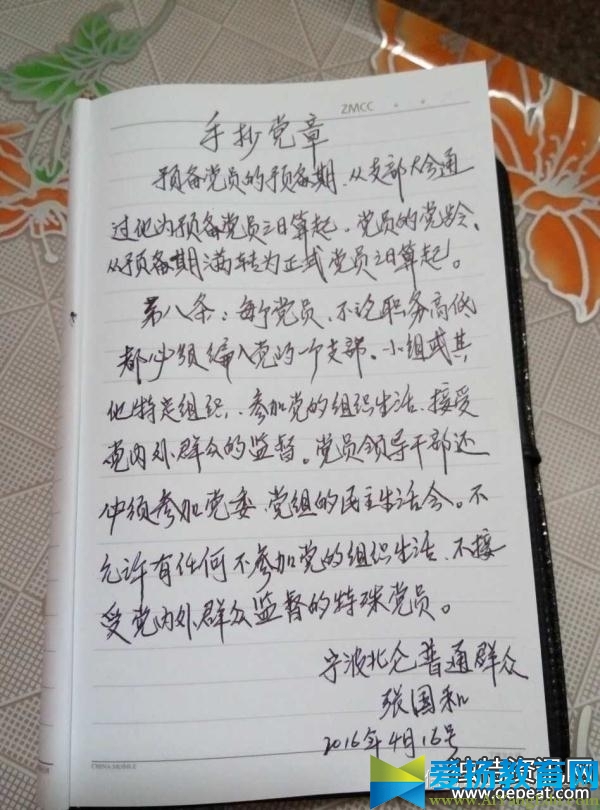 ZMCC
手抄党章
预备党员的预备期、从支部大会通
过他为预备党员之日算起。党员的党龄、
从预备期满转为正式党员之日算起。
第八条:每个党员、不论职务高低
都必须编入党的一个支部、小组或其
他特定组织、参加党的组织生活、接受
党内外群众的监督。党员领导干部还
必须参加党委、党组的民主生活会。不
允许有任何不参加党的组织生活、不接
受党内外群众监督的特殊党员。
宁波北仑普通群众
张国和
2016年4月16号
CHINA MOBILE
爱扬教育网
www.depeat.com